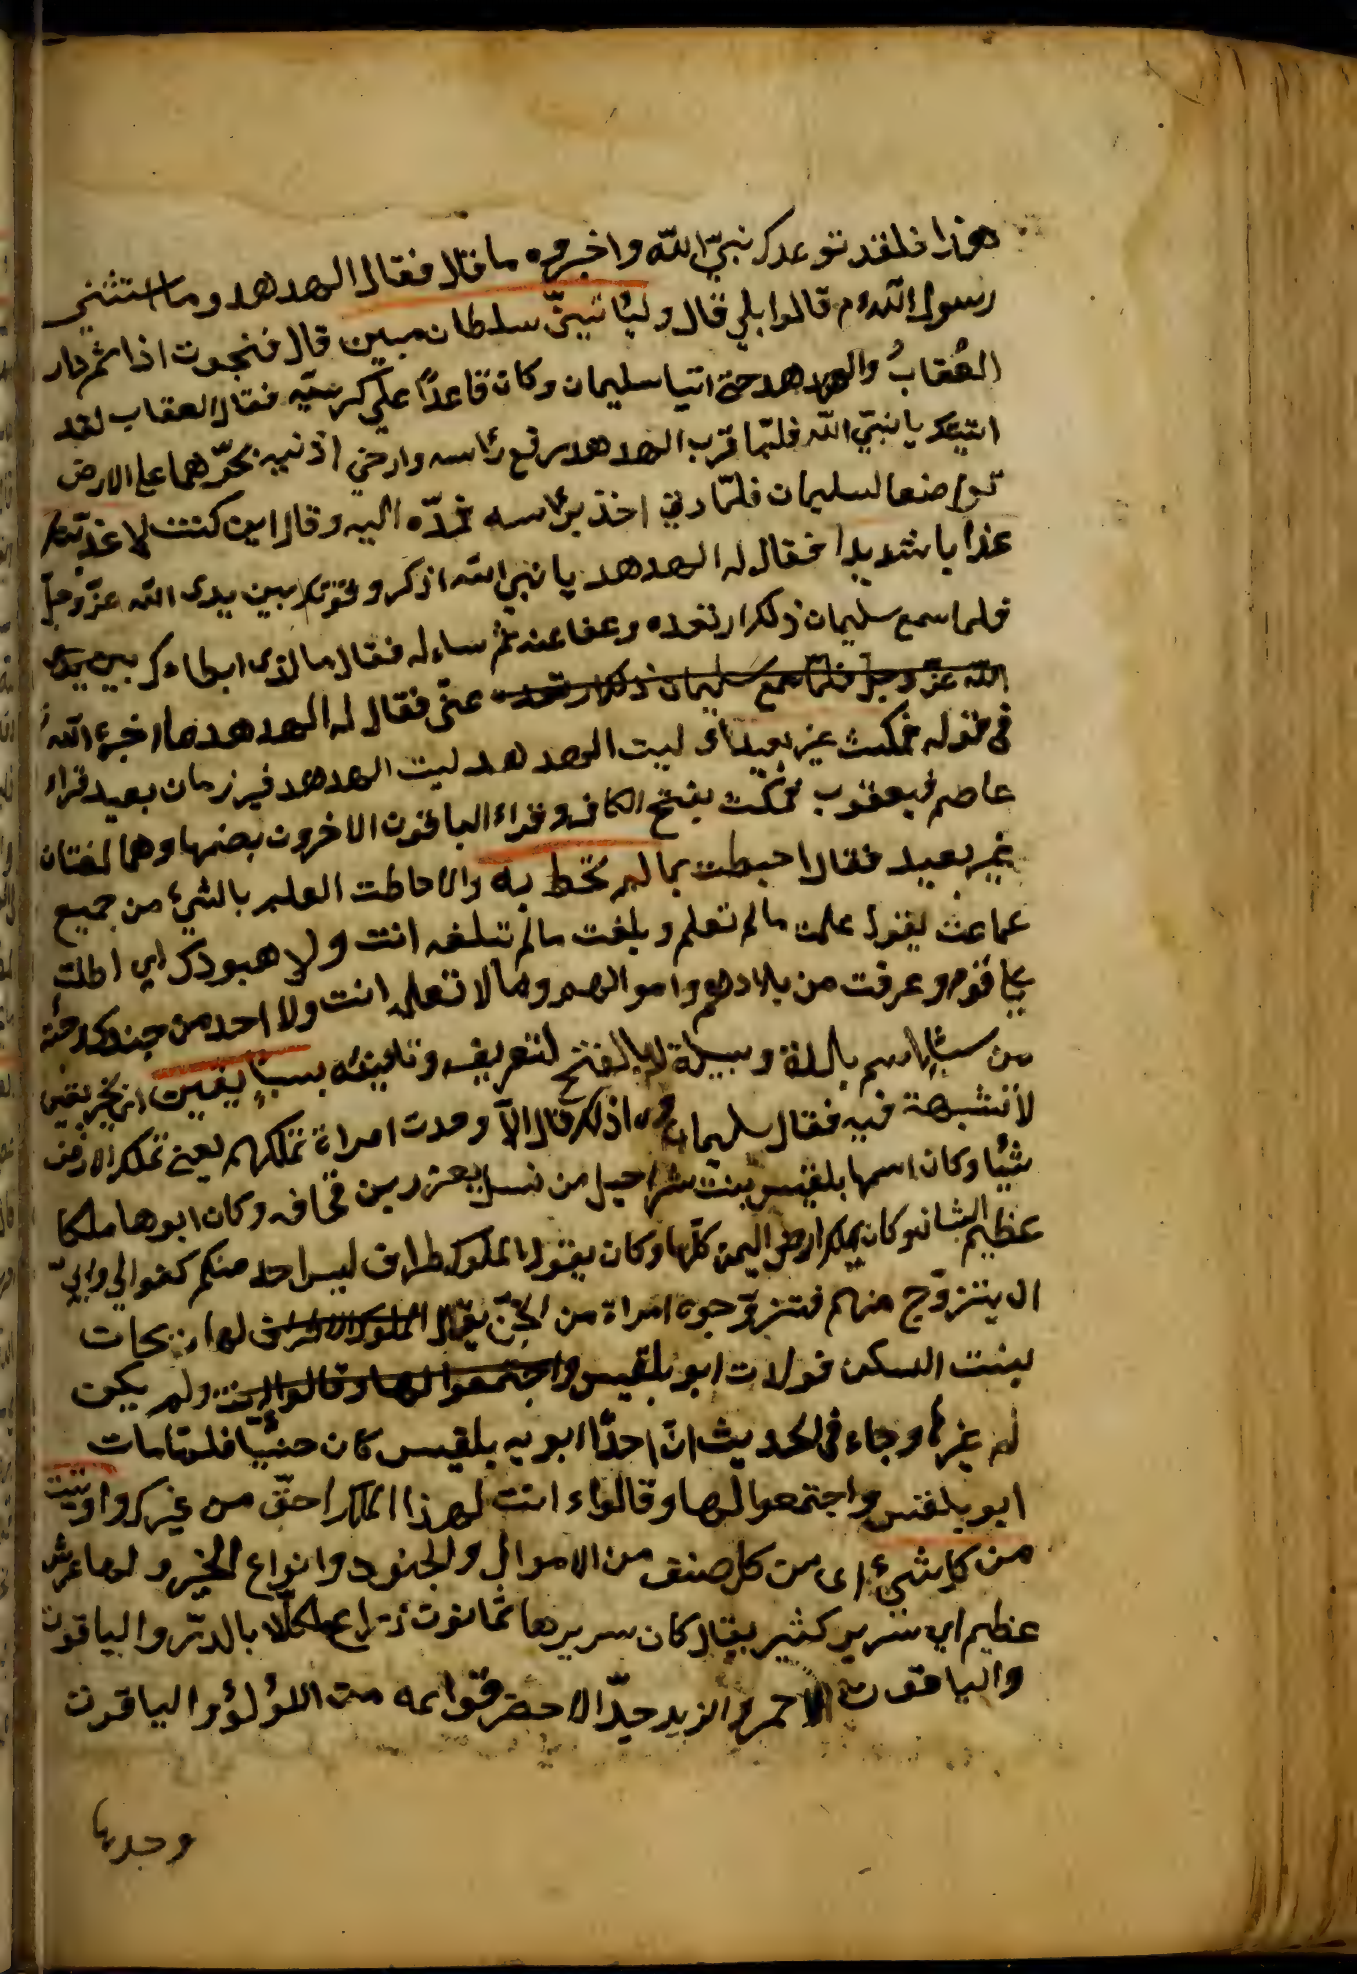 هذا فلقد توعدك نبيّ الله واخبروه ما قالا فقال الهدهد وما استثنى
رسول الله م قالوا بلى قال وليأتينّي سلطان مبين قال فنجوت اذا ثم طار
العُقابُ والهدهد حتى اتيا سليمان وكان قاعدًا على كرسيّه فقال العقاب لقد
اتيتك يا نبيّ الله فلمّا قرب الهدهد رفع رأسه وارخى اذنيه يجرّهما على الارض
تواضعا لسليمان فلمّا دنى اخذ برأسه فمدّه اليه وقال اين كنت لاعذبنّك
عذابا شديدا فقال له الهدهد يا نبي الله اذكر وقوفك بين يدى الله عزّ وجلّ
فلما سمع سليمان ذلك ارتعده وعفا عنه ثم سأله فقال ما الذى ابطاءك بين يدى
الله عزّ وجلّ فلمّا سمع سليمان ذلك ارتعده عنّى فقال له الهدهد ما اخبره اللهُ
فى قوله فمكث غير بعيد اى لبث الهدهد لبث الهدهد غير زمان بعيد قراء
عاصم و يعقوب فمكث بفتح الكاف وقراء الباقون الاخرون بضمها وهما لغتان
غير بعيد فقال احطت بما لم تحط به والاحاطت العلم بالشئ من جميع
يقول علمت ما لم تعلم وبلغت ما لم تبلغه انت ولا جنودك اى اطلت
قوم وعرفت من بلادهم واموالهم وما لا تعلمه انت ولا احد من جندك وجئتك
من سبأ اسم بلدة وقبيلة بالفتح لتعريف وتأنيثه بنبأٍ يقين اى بخبر يقين
لا شبهة فيه فقال سليمان وما ذلك قال انّى وجدت امراة تملكهم يعنى تملك الارض
شيئا وكان اسمها بلقيس بنت شراحيل من نسل يعرب بن قحافه وكان ابوها ملكا
عظيم الشان وكان يملك ارض اليمن كلّها وكان يقول الملوك طراف ليس احد منكم كفوا لى وابىّ
ان يتزوّج منهم فتزوّجوه امراة من الجنّ يقال الملوك الاطراف لها ريحات
بنت السكن فولدت ابو بلقيس واجتمعوا لها وقالوا انت ولم يكن
له غيرها وجاء فى الحديث انّ احدًا ابويه بلقيس كان جنيّا فلمّا مات
ابو بلقيس واجتمعوا لها وقالواء انت لهذا الملك احقّ من غيرك واوتيت
من كل شئ اى من كل صنف من الاموال والجنود وانواع الخير ولها عرش
عظيم اى سرير كثير يقال كان سريرها ثمانون ذراع مكلّلا بالدرّ والياقوت
والياقوت الاحمر والزبرجدّ الاخضر قوائمه من اللؤلؤ والياقوت
وجدها